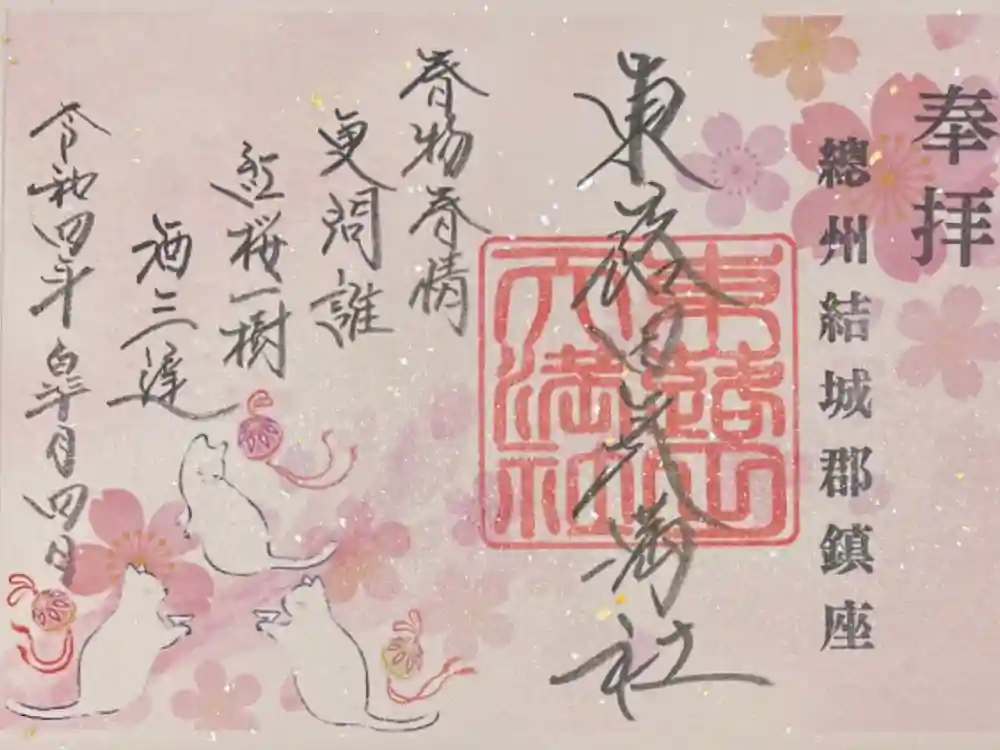 奉拝
總州結城郡鎮座
東蕗田天満社
東蕗田
天満社
春物春情
更問誰
紅桜一樹
酒三遅
令和四年 皐月四日